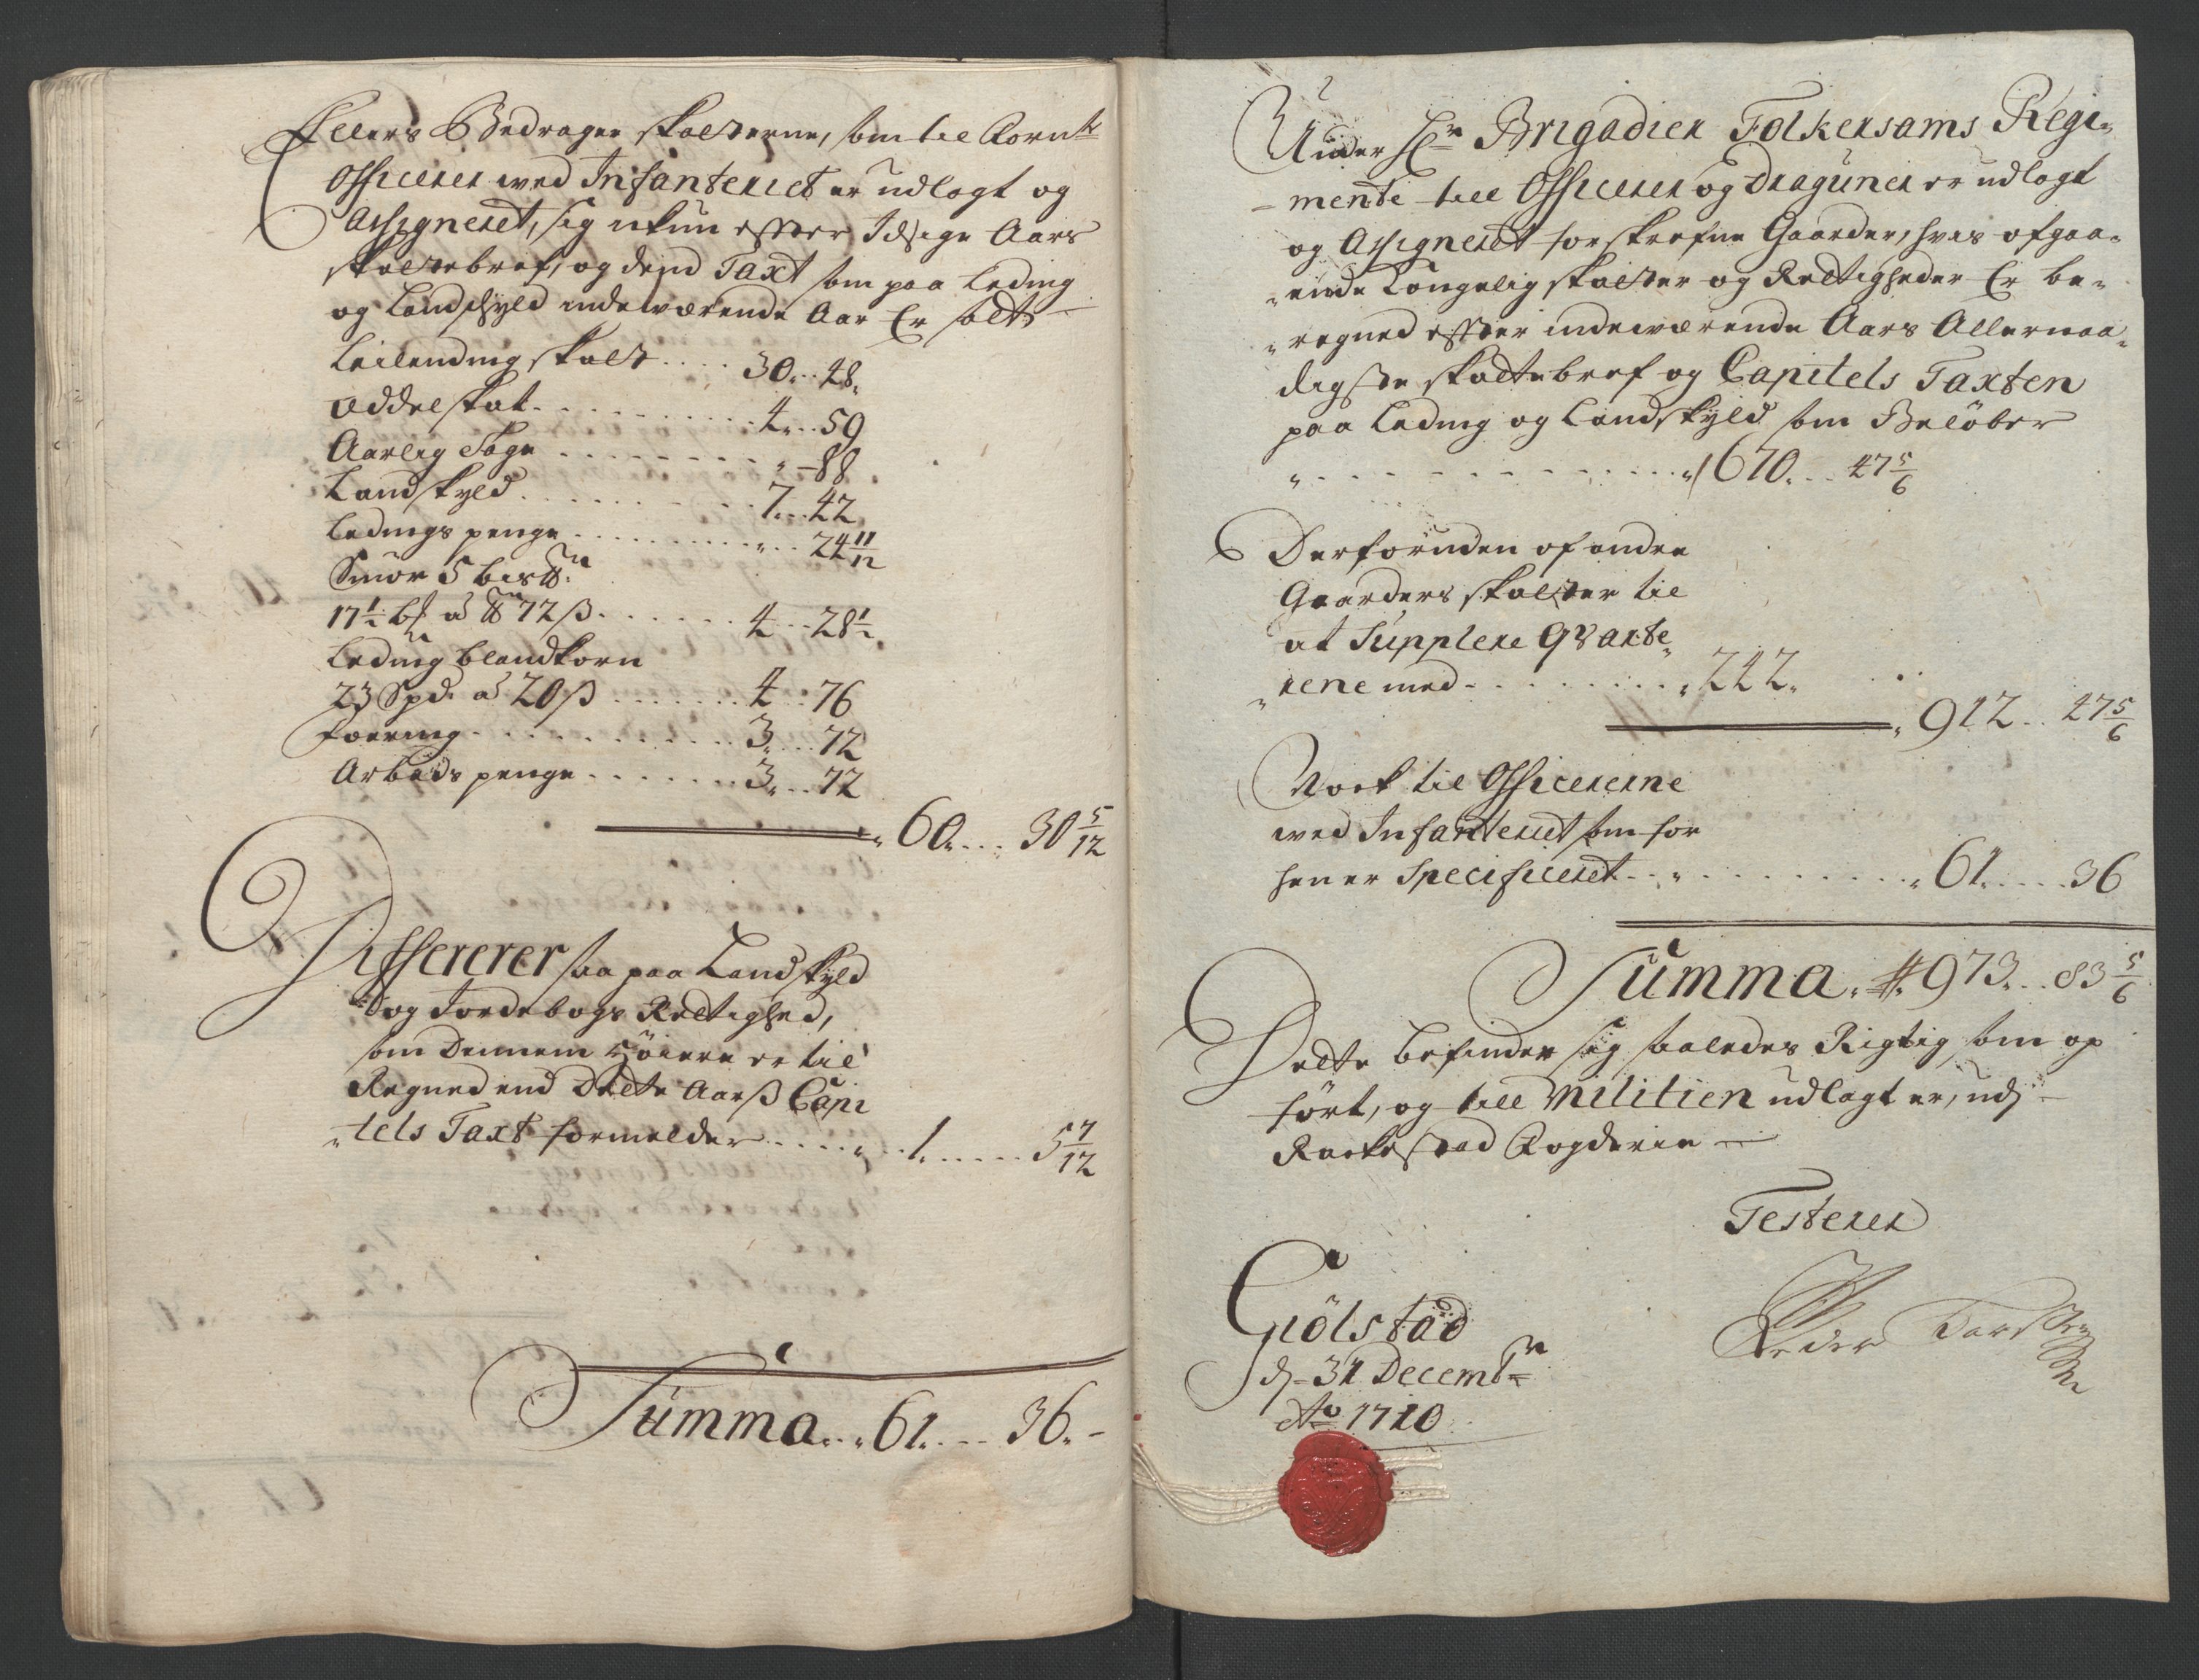 Ellers Bedrager skatterne, som til
Officerer wed Infanteriet er udlagt og
Assigneret, sig ickun effter Idsige Aars
skattebref, og dend Taxt som paa Leding
og Landschyld indewærende Aar Er satt
Leilending skatt .... 30 .. 48.
Oddelskat .......... 4 .. 59
Aarlig Sage ........ " - 88
Landskyld .......... 7 ... 42
Ledings penge ......... " .. 24 11/12
Smör 5 bis℔:
17½ b℔ a ℔ 72 ß ...... 4 ... 28½
Leding blandkorn
23 Spd. a 20 ß ....... 4 .. 76
Foering ............. 3 ... 72
Arbeds penge ....... 3 ... 72
60 ... 30 5/12
Differerer saa paa Landskyld
og Jordebogs Rettighed,
som Dennem höiere er til
Regned end Dette Aarß Capi
tels Taxt formelder .... " .. 1 ..... 5 7/12
Summa .. 61 ... 36. -
Under Hr Brigadier Folkersams Regi-
- mente till Officerer og Dragüner er udlagt
og Assigneret forskrefne Gaarder, hvis afgaa-
ende Kongelig skatter og Rettigheder Er be-
regned effter indewærende Aars Allernaa-
digste skattebref og Capitels Taxten
paa Leding og Landskyld som Belöber
" ............... 670 ... 47 5/6
Derforuden af andre
Gaarders skatter til
at Supplere Qvarte-
rene med ......... 242.
912 .. 47 5/6
Nock til Officererne
wed Infanteriet som for
hen er Specificeret .............. 61 .... 36
Summa. 973 .. 83 5/6
Dette befinder sig saaledes Rigtig som op
fört, og till Militien udlagt er, udj
Rackestad Fogderie
Testerer
Giölstad
d. 31 Decembr
Ao 1710
Peder